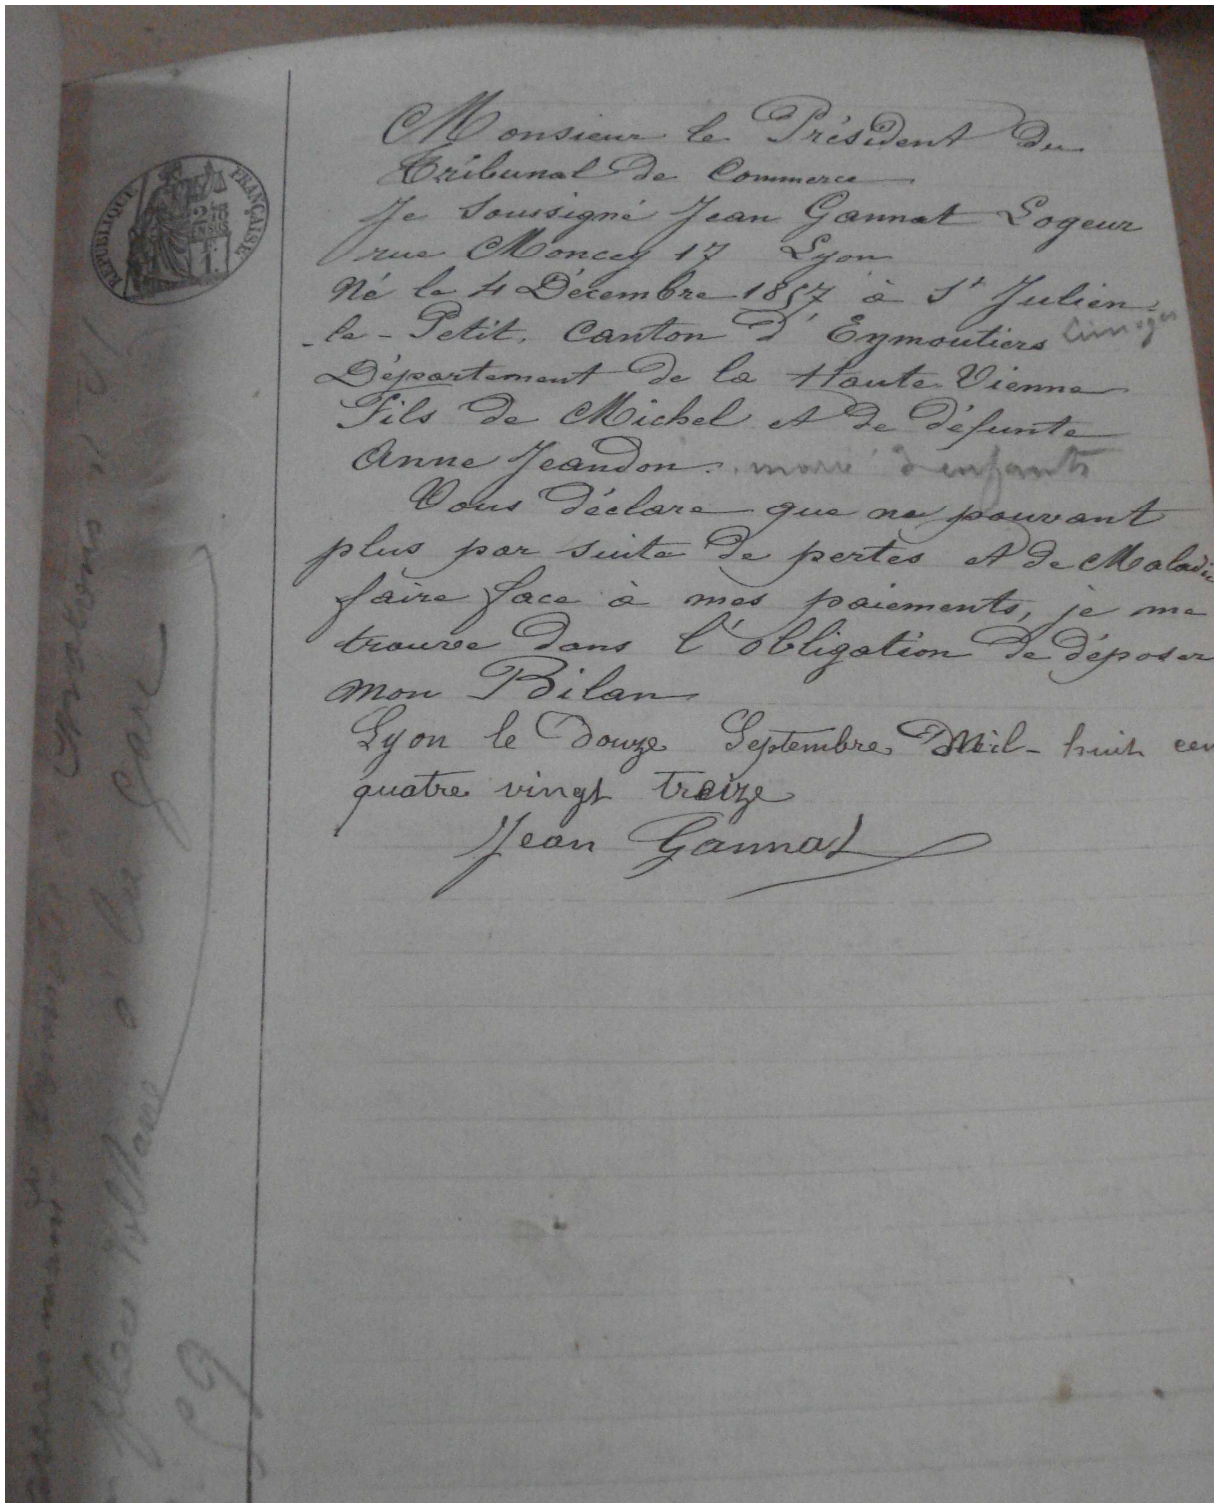 RÉPUBLIQUE FRANÇAISE
Monsieur le Président du
Tribunal de Commerce
Je Soussigné Jean Gannat Logeur
rue Moncey 17 Lyon
Né le 4 Décembre 1857 à St Julien-
-le-Petit, Canton d'Eymoutiers Limoges
Département de la Haute-Vienne
Fils de Michel et de défunte
Anne Jeandon. marié d'enfants
Vous déclare que ne pouvant
plus par suite de pertes et de Maladie
faire face à mes paiements, je me
trouve dans l'obligation de déposer
mon Bilan
Lyon le douze Septembre Mil-huit cen
quatre vingt treize
Jean Gannat
à la Gare
place Voltaire